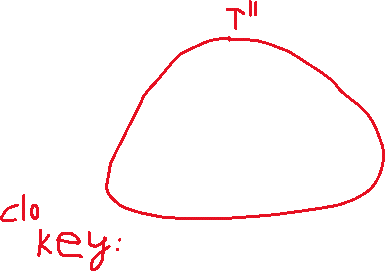 T"
clo
key: